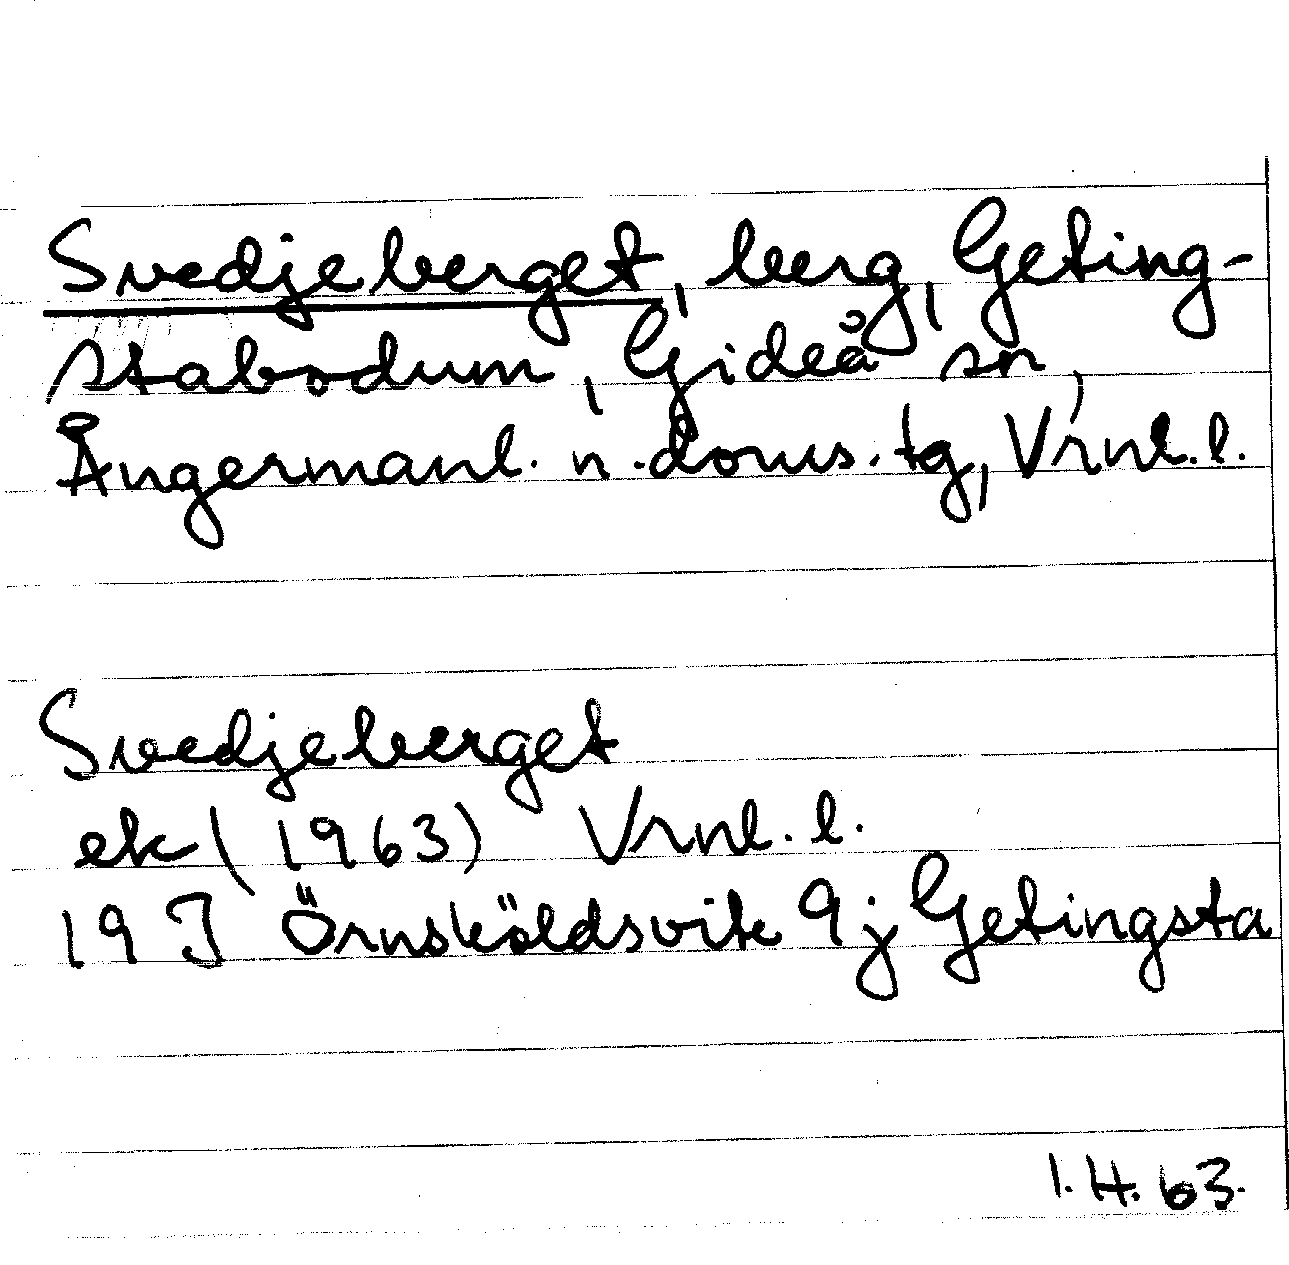 Svedjeberget, berg, Geting-
stabodum, Gideå sn,
Ångermanl. n. doms. tg, Vrnl. l.
Svedjeberget
ek (1963) Vrnl. l.
19 J Örnsköldsvik 9j Getingsta
I. H. 63.